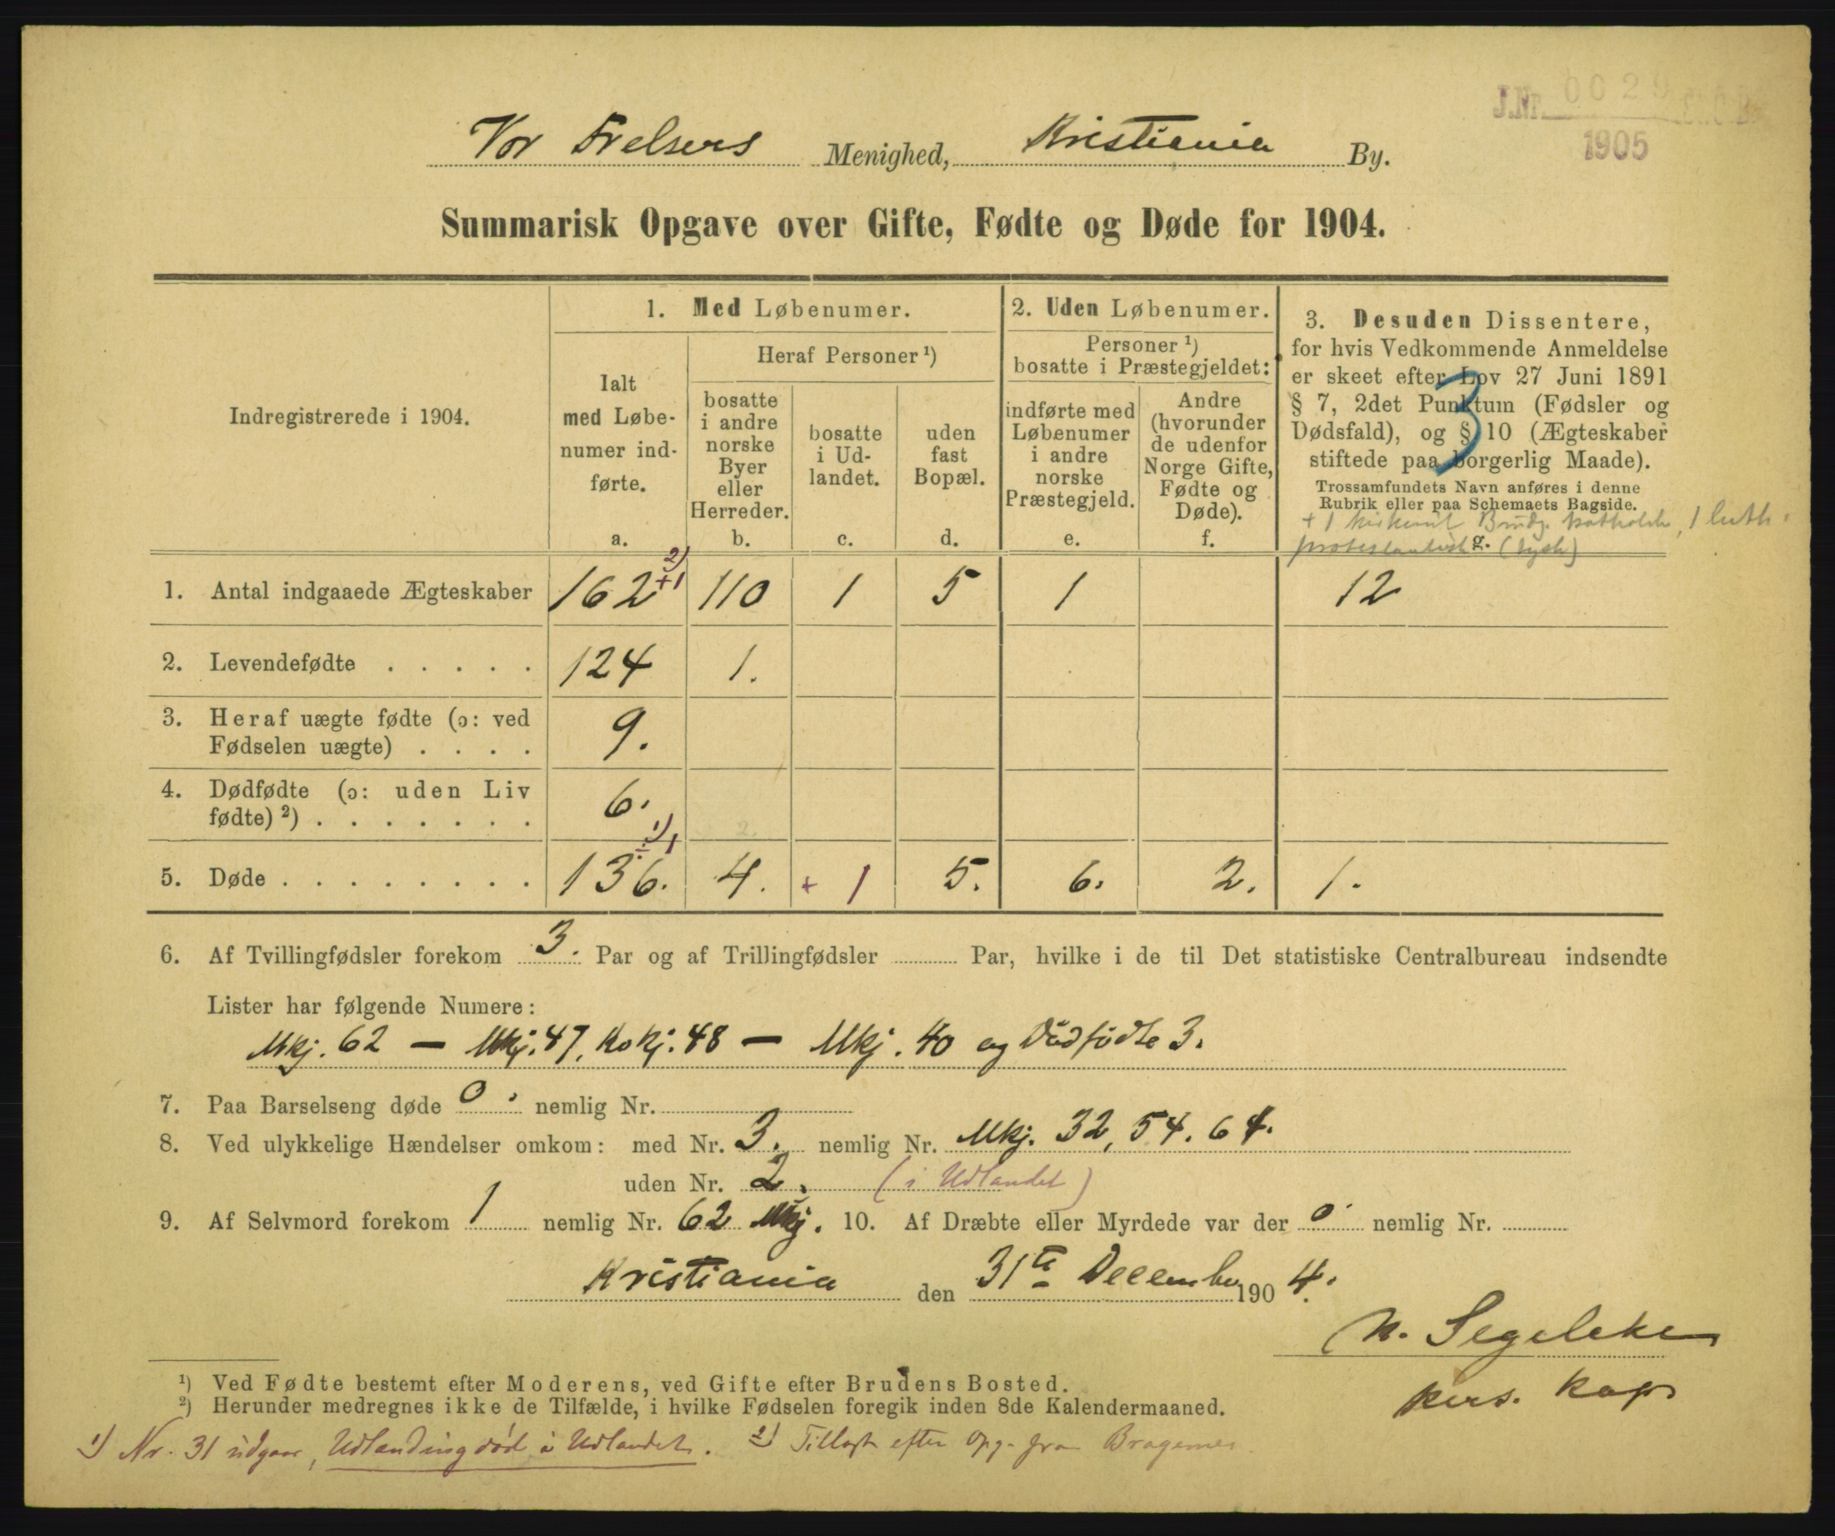 J.Nr. 0029
1905
Vor Frelsers Menighed, Kristiania By.
Summarisk Opgave over Gifte, Fødte og Døde for 1904.
Indregistrerede i 1904.
1. Med Løbenumer.
Ialt med Løbe-
numer ind-
førte.
a.
Heraf Personer ¹)
bosatte
i andre
norske
Byer
eller
Herreder.
b.
bosatte
i Ud-
landet.
c.
uden
fast
Bopæl.
d.
2. Uden Løbenumer.
Personer ¹)
bosatte i Præstegjeldet:
indførte med
Løbenumer
i andre
norske
Præstegjeld.
e.
Andre
(hvorunder
de udenfor
Norge Gifte,
Fødte og
Døde).
f.
3. Desuden Dissentere,
for hvis Vedkommende Anmeldelse
er skeet efter Lov 27 Juni 1891
§ 7, 2det Punktum (Fødsler og
Dødsfald), og § 10 (Ægteskaber
stiftede paa borgerlig Maade).
Trossamfundets Navn anføres i denne
Rubrik eller paa Schemaets Bagside.
3
+ 1 Brudg. katholsk, 1 luth.
protestantisk g. (tysk)
1. Antal indgaaede Ægteskaber 162 +1 ²) 110 1 5 1 12
2. Levendefødte . . . . . 124 1.
3. Heraf uægte fødte (ɔ: ved
Fødselen uægte) . . . . 9.
4. Dødfødte (ɔ: uden Liv
fødte) ²) . . . . . . . 6. 2.
5. Døde . . . . . . . . 136. ÷1 ¹) 4. + 1 5. 6. 2. 1.
6. Af Tvillingfødsler forekom 3. Par og af Trillingfødsler Par, hvilke i de til Det statistiske Centralbureau indsendte
Lister har følgende Numere:
Mkj. 62 — Mkj. 47, Kokj. 48 — Mkj. 40 og Dødfødte 3.
7. Paa Barselseng døde 0. nemlig Nr.
8. Ved ulykkelige Hændelser omkom: med Nr. 3. nemlig Nr. Mkj. 32, 54, 64.
uden Nr. 2. (i Udlandet)
9. Af Selvmord forekom 1 nemlig Nr. 62 Mkj. 10. Af Dræbte eller Myrdede var der 0 nemlig Nr.
Kristiania den 31te December 1904.
N. Segelcke
pers. Kap.
¹) Ved Fødte bestemt efter Moderens, ved Gifte efter Brudens Bosted.
²) Herunder medregnes ikke de Tilfælde, i hvilke Fødselen foregik inden 8de Kalendermaaned.
¹) Nr. 31 udgaar, Udlænding død i Udlandet. ²) Tillagt efter Opg. fra Bragernes.